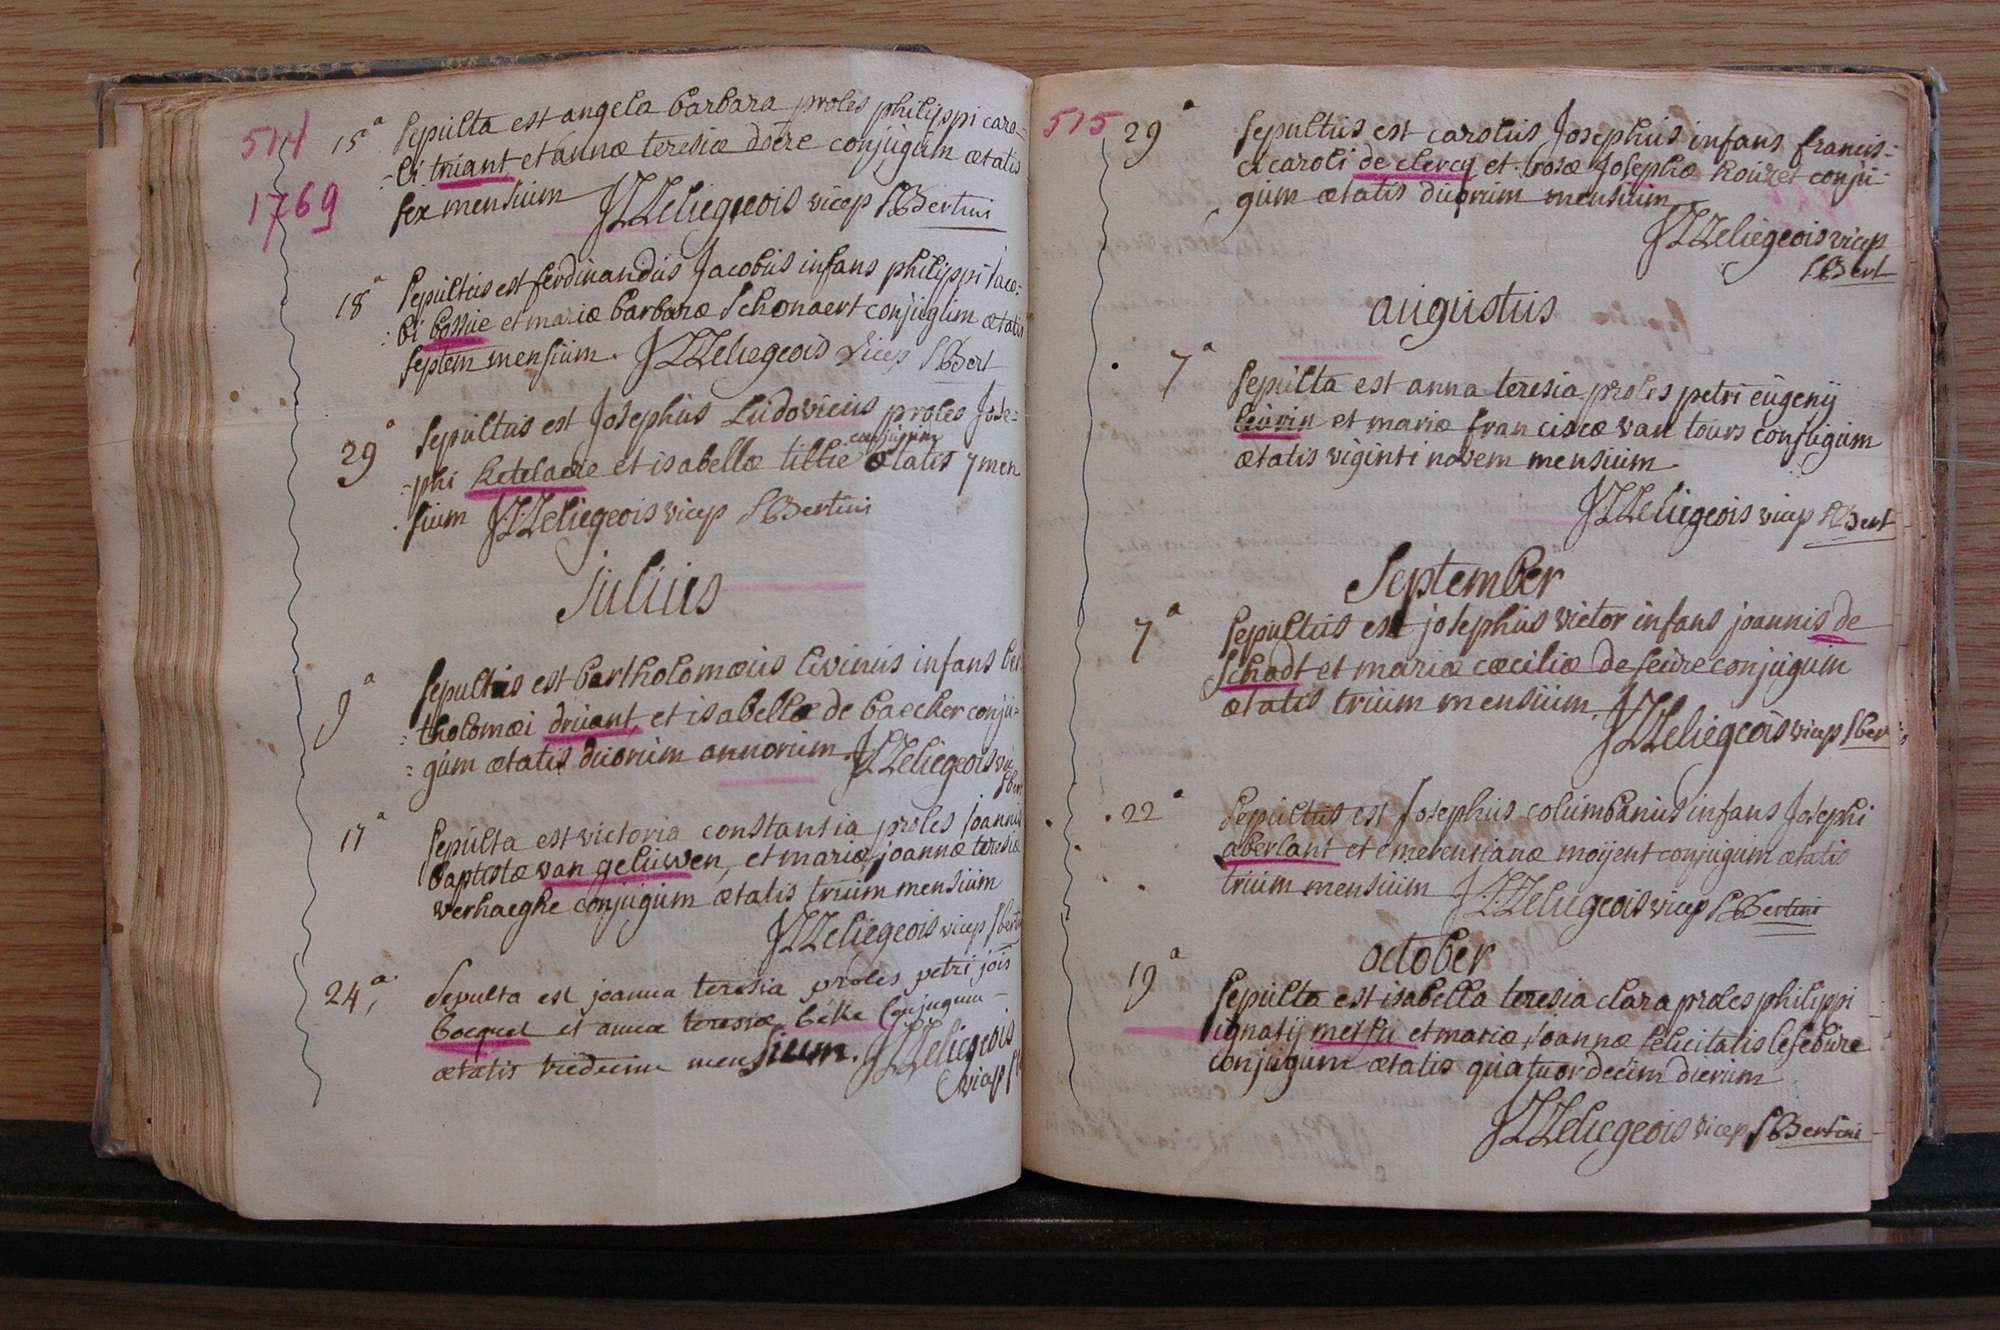 514
1769
15a Sepulta est angela barbara proles philippi caro-
-li triant et annæ teresiæ doëre conjugum ætatis
sex mensium JLLeliegeois vicep SBertini
18a Sepultus est ferdinandus Jacobus infans philippi Jaco:
:bi bossue et mariæ barbaræ Schonaert conjugum ætatis
septem mensium. JLLeliegeois vicep SBert
29a Sepultus est Josephus Ludovicus proles Jose=
-phi Ketelaere et isabellæ tillie conjugum ætatis 7 men
sium JLLeliegeois vicep SBertini
Julius
9a Sepultus est bartholomæus livinus infans bar
:tholomæi druant et isabellæ de baecker conju=
=gum ætatis duorum annorum. JLLeliegeois vic
SBert
17a Sepulta est victoria constantia proles Joannis
baptistæ van geluwen, et mariæ joannæ teresiæ
verhaeghe conjugum ætatis trium mensium
JLLeliegeois vicep Sberti
24a, Sepulta est joanna teresia proles petri jois
bocquet et annæ teresiæ béke Conjugum
ætatis tredecim mensium. JLLeliegeois
vicep
515
29a Sepultus est carolus Josephus infans francis=
ci caroli de clercq et rosæ Josephæ Rouzet conju-
gum ætatis duorum mensium
JLLeliegeois vicep
SBert
augustus
7a Sepulta est anna teresia proles petri eugenij
leurin et mariæ franciscæ van tours conjugum
ætatis viginti novem mensium
JLLeliegeois vicep SBert
September
7a Sepultus est josephus victor infans joannis de
Schodt et mariæ cæciliæ de seure conjugum
ætatis trium mensium. JLLeliegeois vicep Sber
22a Sepultus est Josephus columbanus infans Josephi
aberlant et emerentianæ moijent conjugum ætatis
trium mensium JLLeliegeois vicep SBertini
october
19a Sepulta est isabella teresia clara proles philippi
ignatij metsu et mariæ Joannæ felicitatis lefebure
conjugum ætatis quatuordecim dierum
JLLeliegeois vicep SBertini